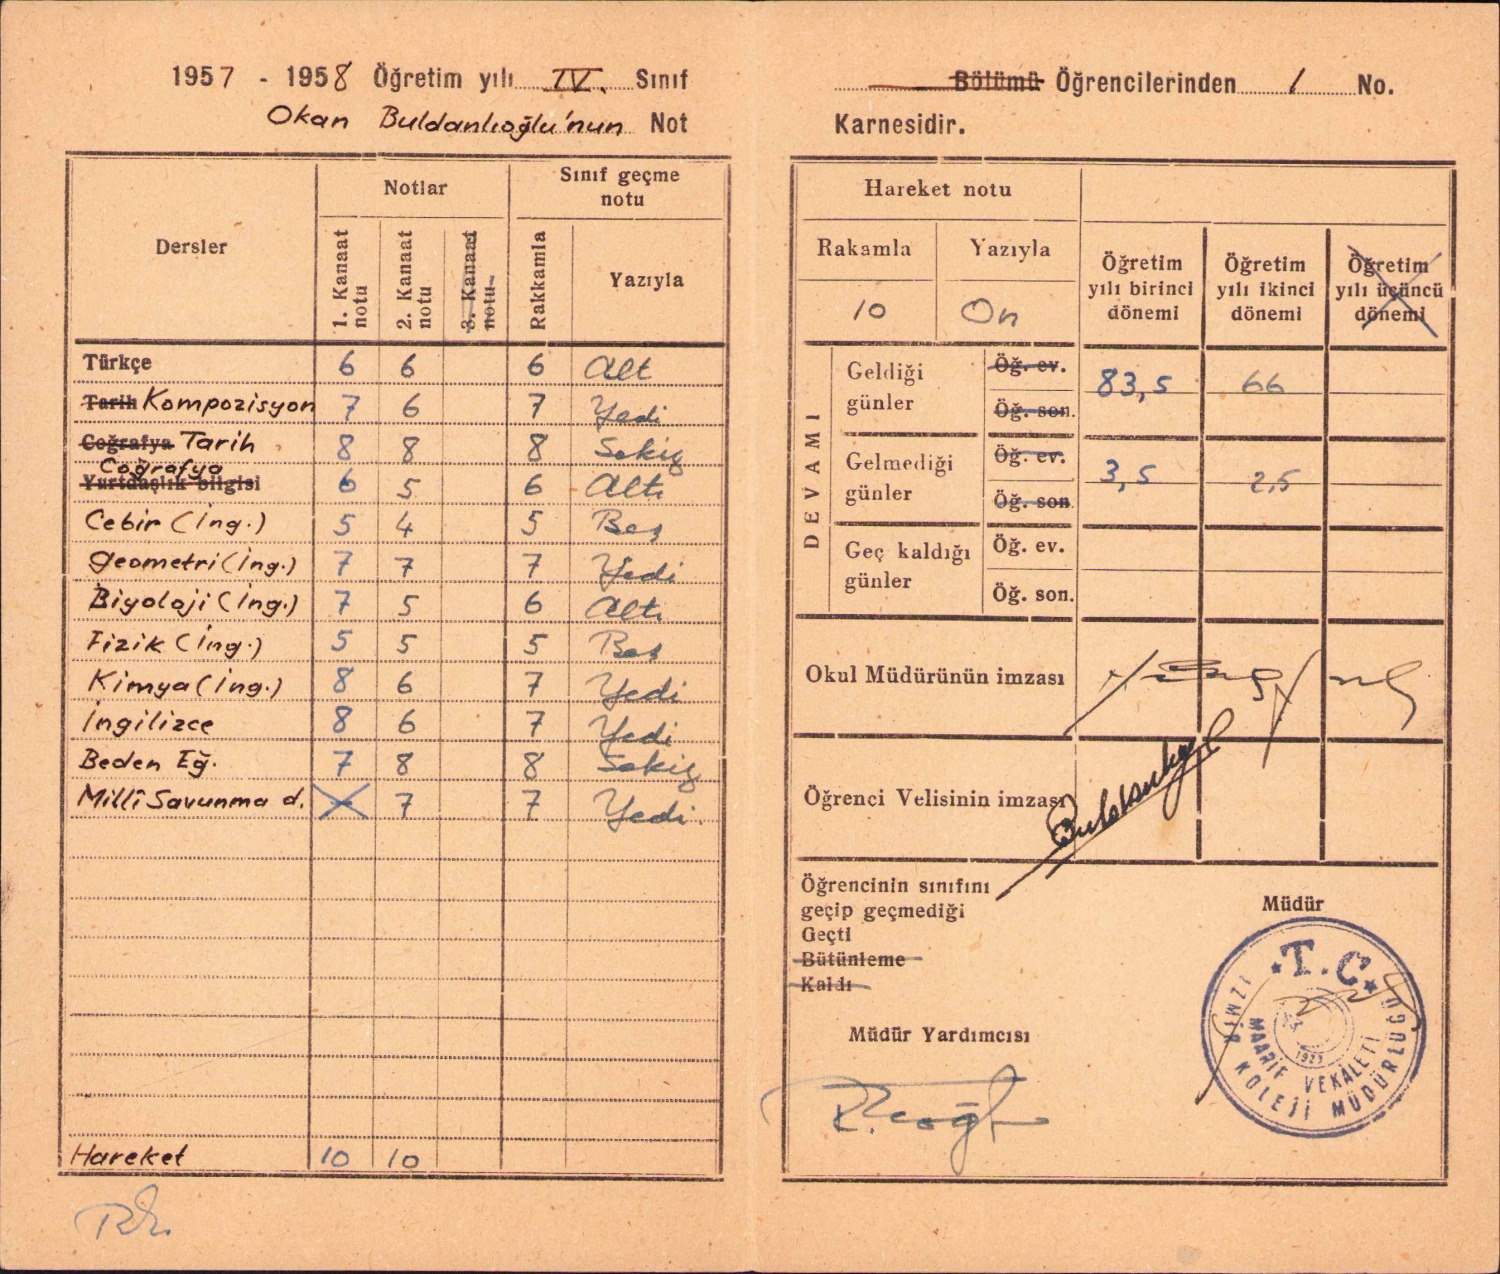 1957 - 1958 Öğretim yılı IV. Sınıf
Okan Buldanlıoğlu'nun Not
Dersler
Notlar
Sınıf geçme notu
1. Kanaat notu
2. Kanaat notu
3. Kanaat notu
Rakkamla
Yazıyla
Türkçe 6 6 6 Altı
Tarih Kompozisyon 7 6 7 Yedi
Coğrafya Tarih 8 8 8 Sekiz
Coğrafya
Yurtdaşlık bilgisi 6 5 6 Altı
Cebir (İng.) 5 4 5 Beş
Geometri (İng.) 7 7 7 Yedi
Biyoloji (İng.) 7 5 6 Altı
Fizik (İng.) 5 5 5 Beş
Kimya (İng.) 8 6 7 Yedi
İngilizce 8 6 7 Yedi
Beden Eğ. 7 8 8 Sekiz
Millî Savunma d. 7 7 Yedi.
Hareket 10 10
Bölümü Öğrencilerinden 1 No.
Karnesidir.
Hareket notu
Rakamla Yazıyla
10 On
Öğretim yılı birinci dönemi
Öğretim yılı ikinci dönemi
Öğretim yılı üçüncü dönemi
DEVAMI
Geldiği günler
Öğ. ev.
Öğ. son.
83,5 66
Gelmediği günler
Öğ. ev.
Öğ. son
3,5 2,5
Geç kaldığı günler
Öğ. ev.
Öğ. son.
Okul Müdürünün imzası
Öğrenci Velisinin imzası
Öğrencinin sınıfını
geçip geçmediği
Geçti
Bütünleme
Kaldı
Müdür Yardımcısı
Müdür
T.C.
MAARİF VEKÂLETİ
İZMİR KOLEJİ MÜDÜRLÜĞÜ
1923